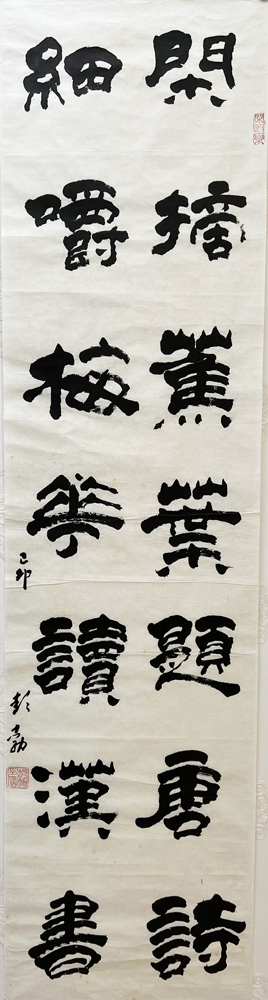 閑摘蕉葉題唐詩
細嚼梅華讀漢書
己卯
彭勃